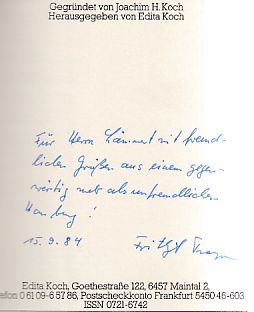 Gegründet von Joachim H. Koch
Herausgegeben von Edita Koch
Für Herrn Lämmert mit freund-
lichen Grüßen aus einem gegen-
wärtig mehr als unfreundlichen
Hamburg!
15.9.84 Frithjof Trapp
Edita Koch, Goethestraße 122, 6457 Maintal 2,
efon 0 61 09-6 57 86, Postscheckkonto Frankfurt 5450 46-603
ISSN 0721-6742